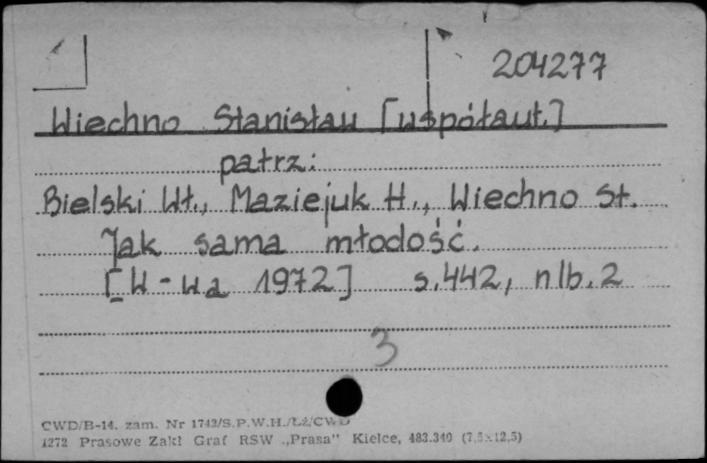 204277
Wiechno Stanisław [współaut.]
patrz:
Bielski Wł., Maziejuk H., Wiechno St.
Jak sama młodość.
[W-wa 1972] s. 442, nlb. 2
3
CWD/B-14. zam. Nr 1743/S.P.W.H./Łż/CWD
1272 Prasowe Zakł Graf RSW „Prasa" Kielce, 483.340 (7,5×12,5)